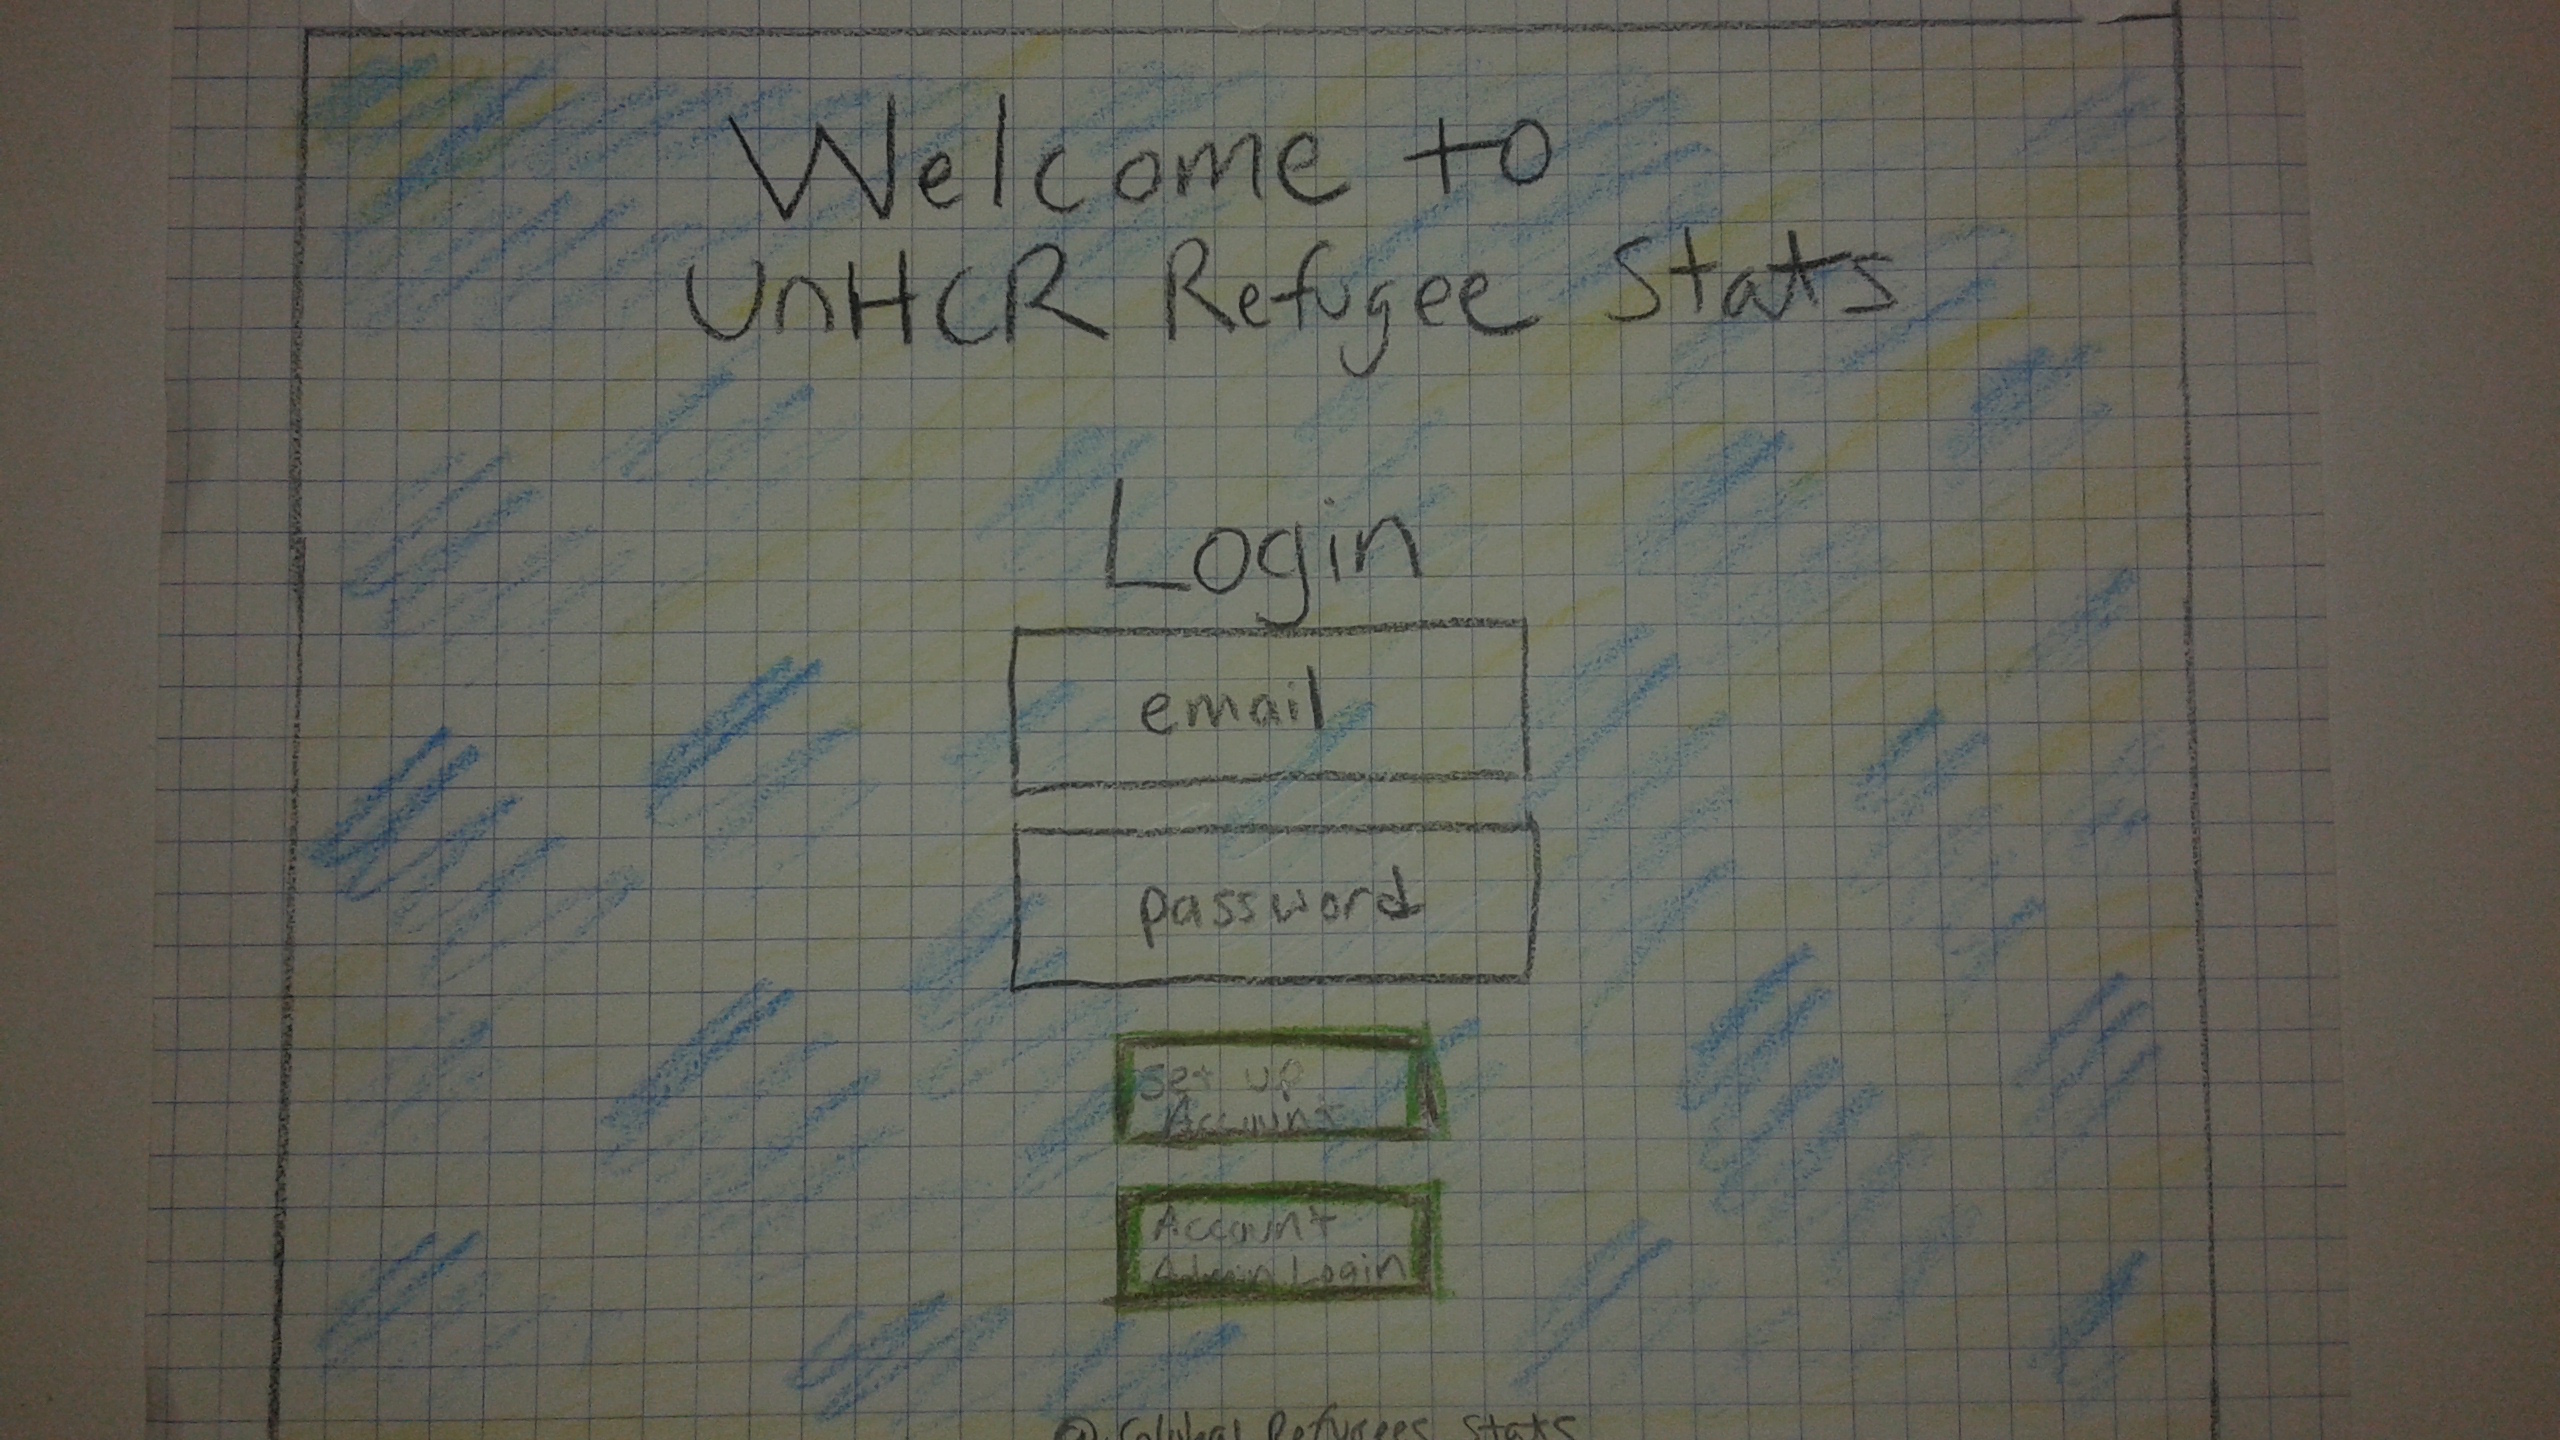 Welcome to
UnHCR Refugee Stats
Login
email
password
Set up
Account
Account
Admin Login
© Global Refugees Stats